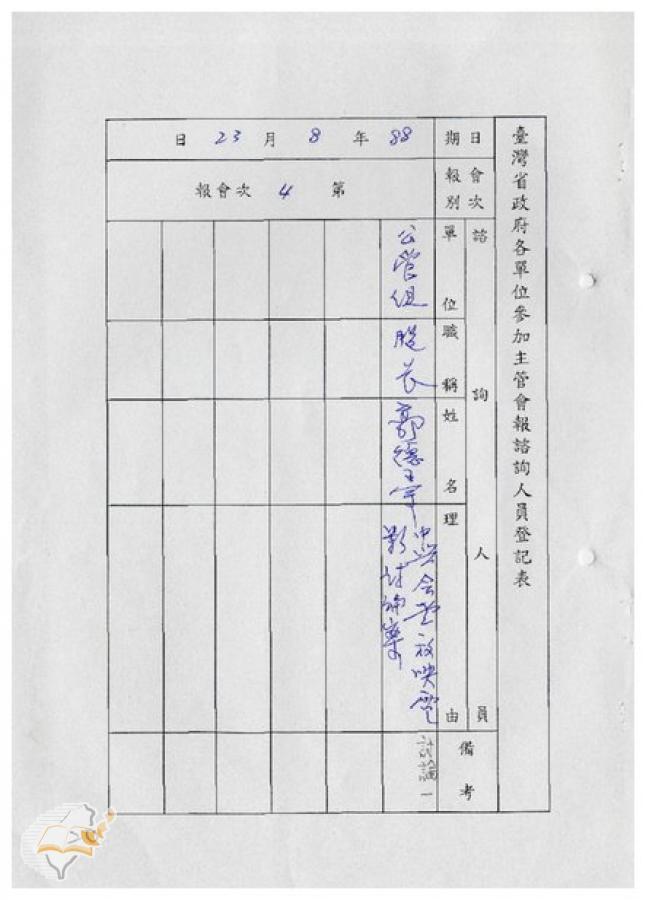 臺灣省政府各單位參加主管會報諮詢人員登記表
日期
88年8月23日
會報次別
第4次會報
諮詢人員
單位
職稱
姓名
理由
備考
公管組
股長
郭德
中興會堂放映電
影討論案
討論一